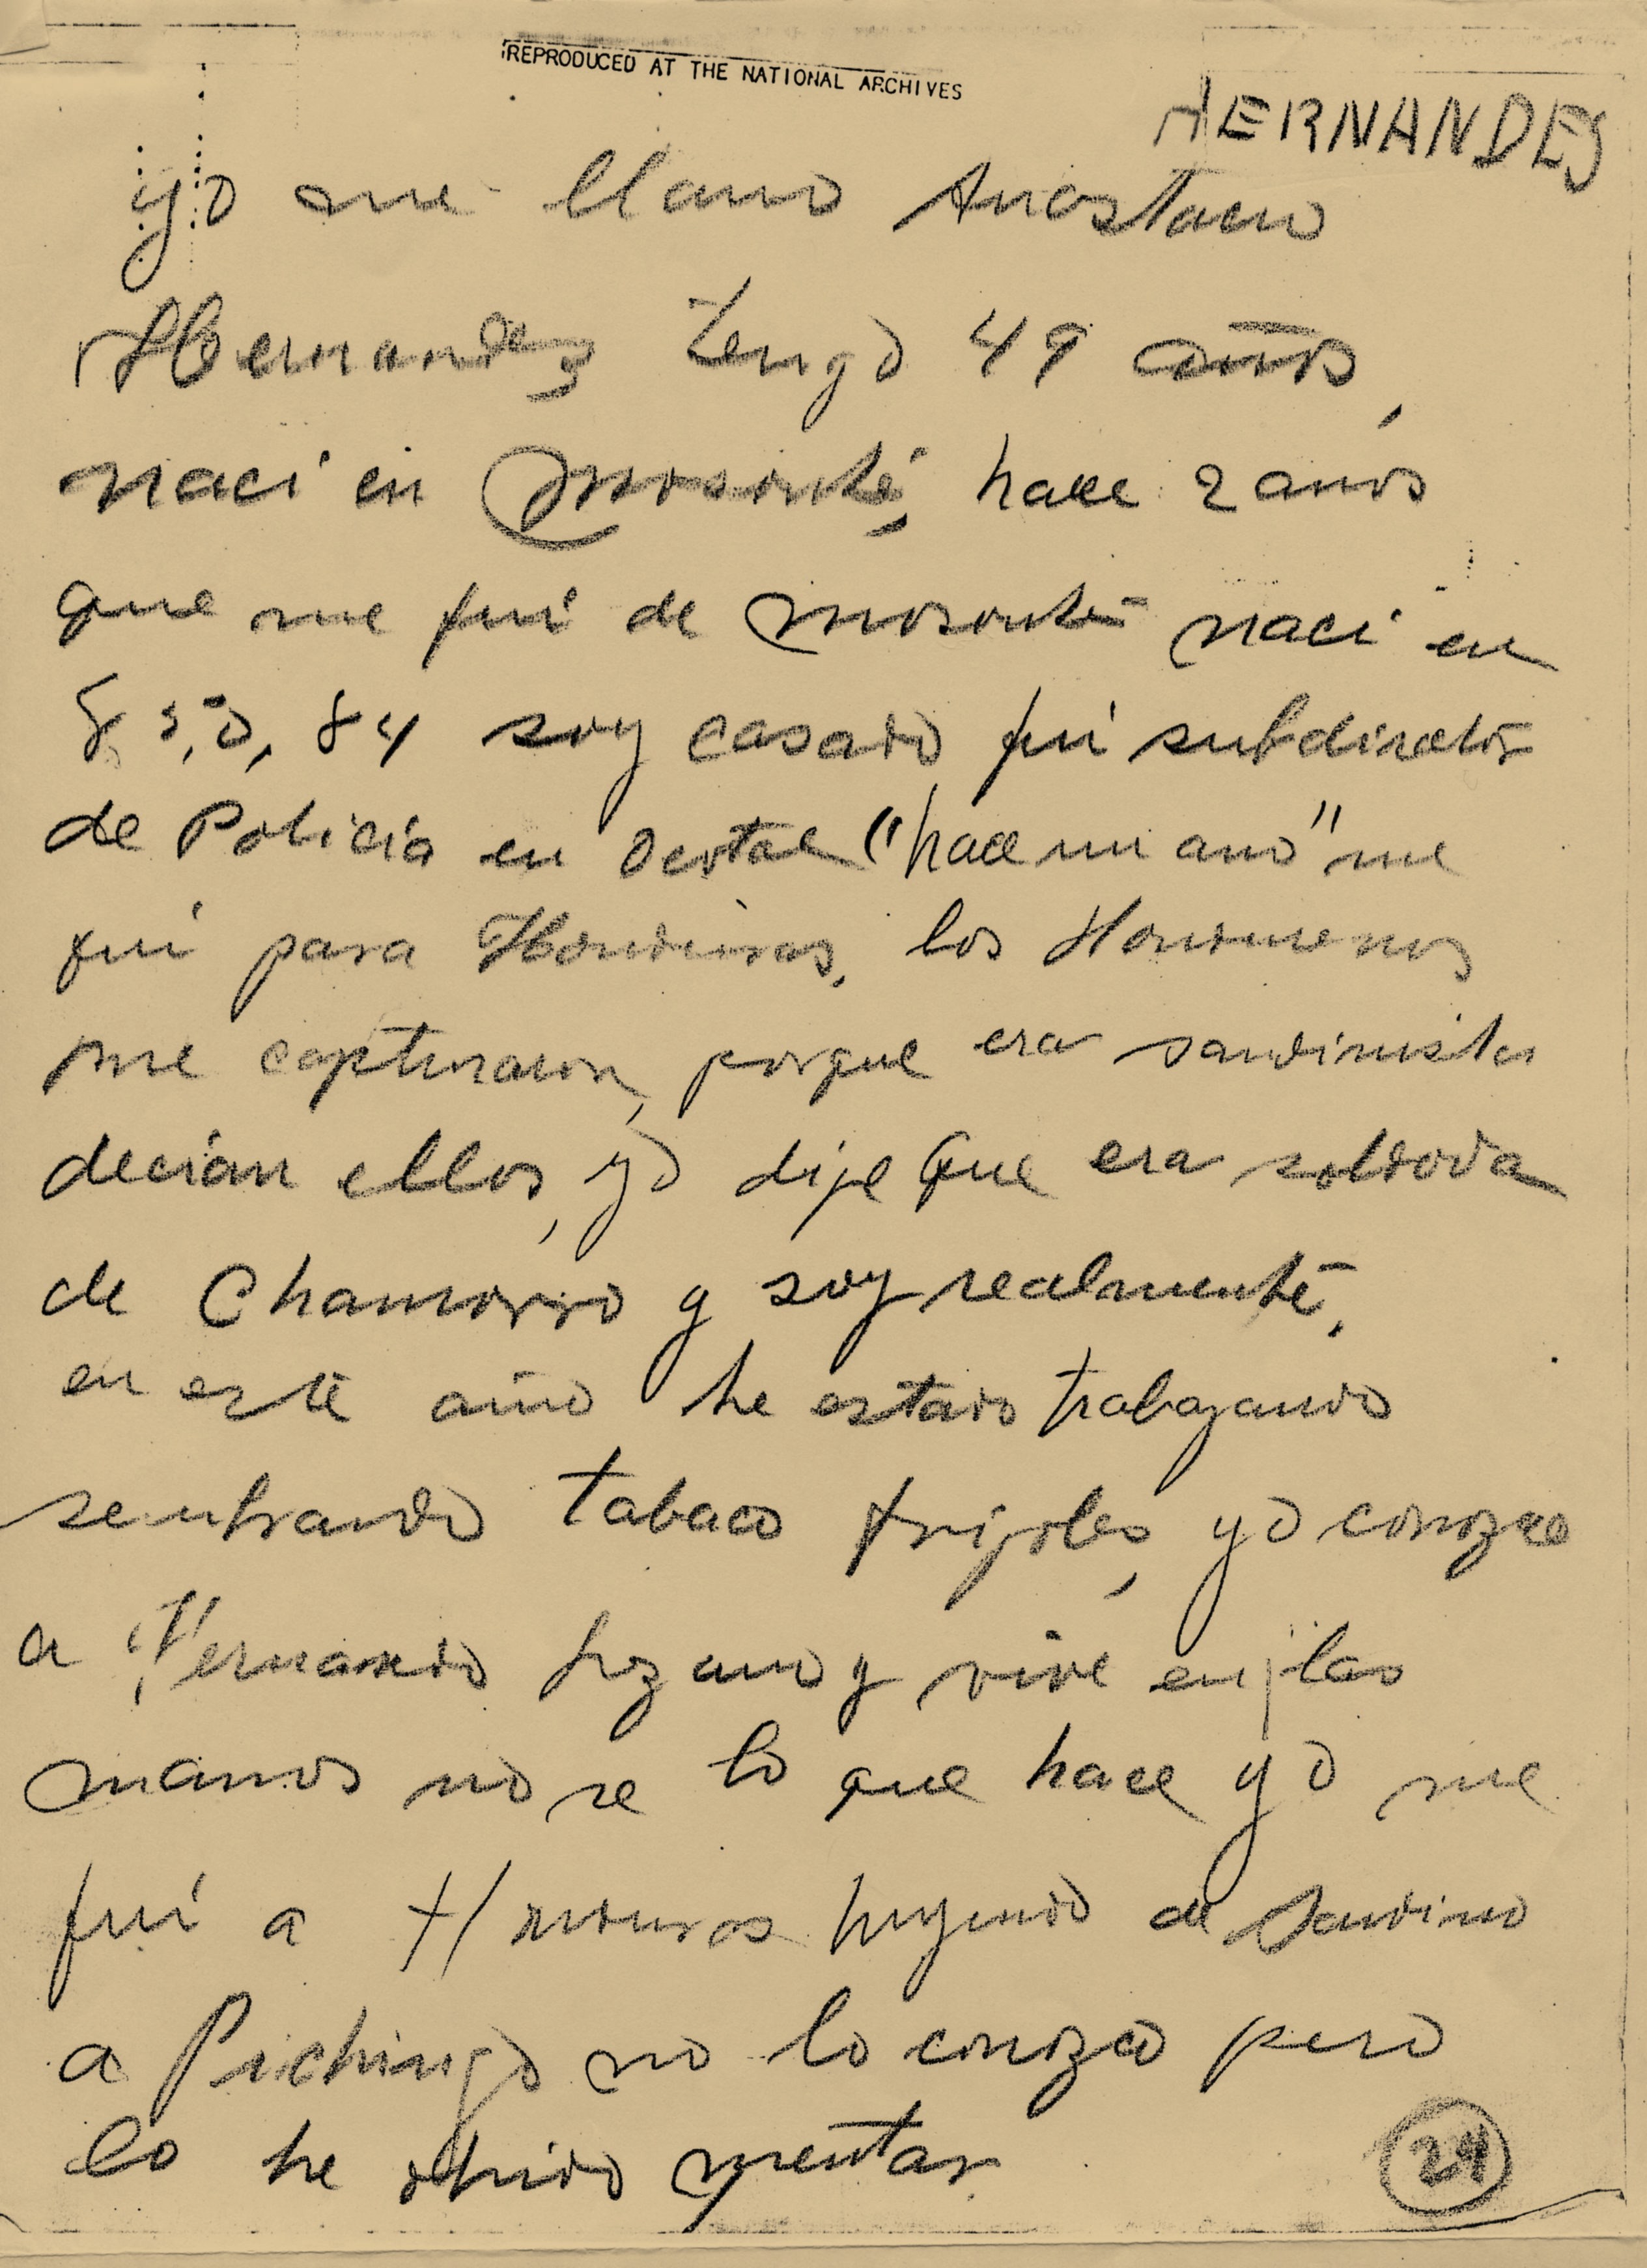 REPRODUCED AT THE NATIONAL ARCHIVES
HERNANDES
yo me llamo Anastacio
Hernandez tengo 49 años,
naci en Mosonte, hace 2 anos
que me fui de mosonte naci en
84 soy casado fui subdirector
de Policía en Ocotal "hace un ano" me
fui para Honduras, los Hondurenos
me capturaron, porque era sandinista
decían ellos, yo dije que era soldado
de Chamorro y soy realmente,
en este año he estado trabajando
sembrando tabaco frijoles, yo conozco
a Fernando Lozano y vive en las
manos no se lo que hace yo me
fui a Honduras huyendo de Sandino
a Pichingo no lo conozco pero
lo he ohido mentar
24